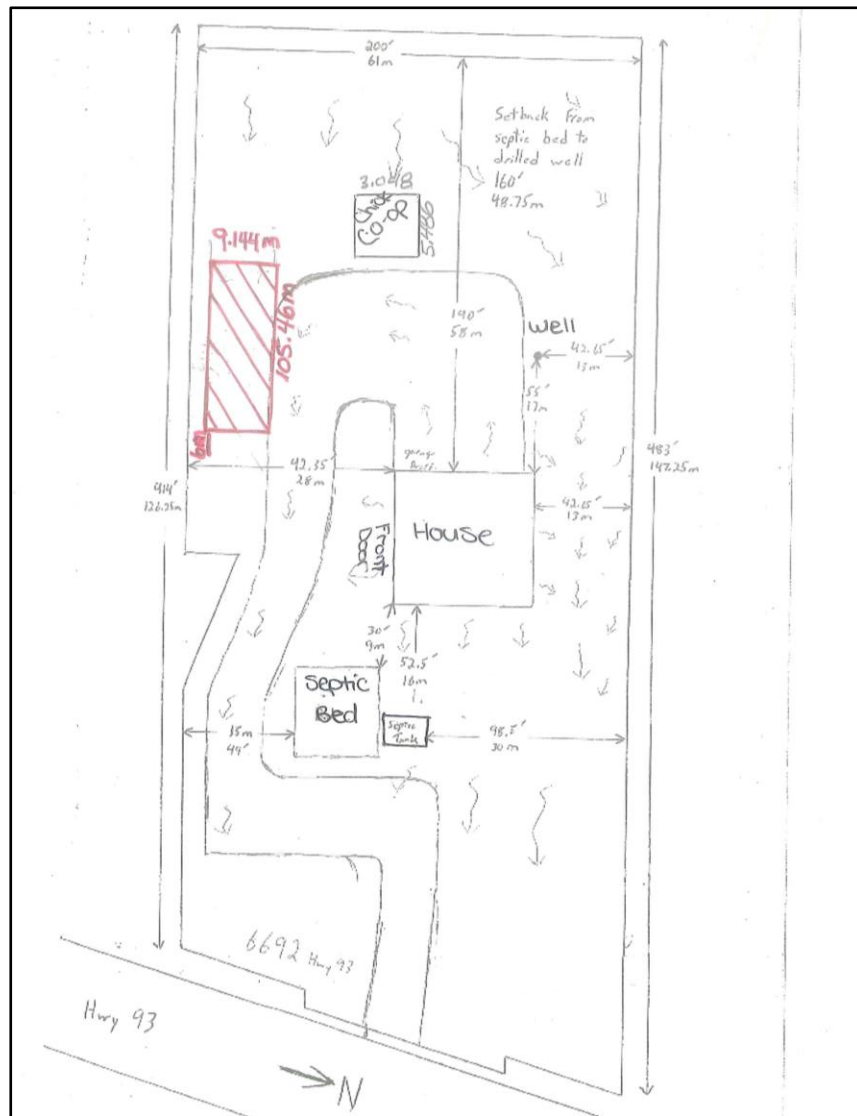 200'
61m
Setback From
septic bed to
drilled well
160'
48.75m
3.048
Chick
CO-OP
5.486
9.144m
105.46m
6m
190'
58m
well
42.65'
13m
55'
17m
483'
147.25m
414'
126.25m
42.35'
28m
42.65'
13m
House
Front
Door
30'
9m
52.5'
16m
Septic
Bed
Septic
Tank
15m
49'
98.5'
30m
6692 Hwy 93
Hwy 93
N